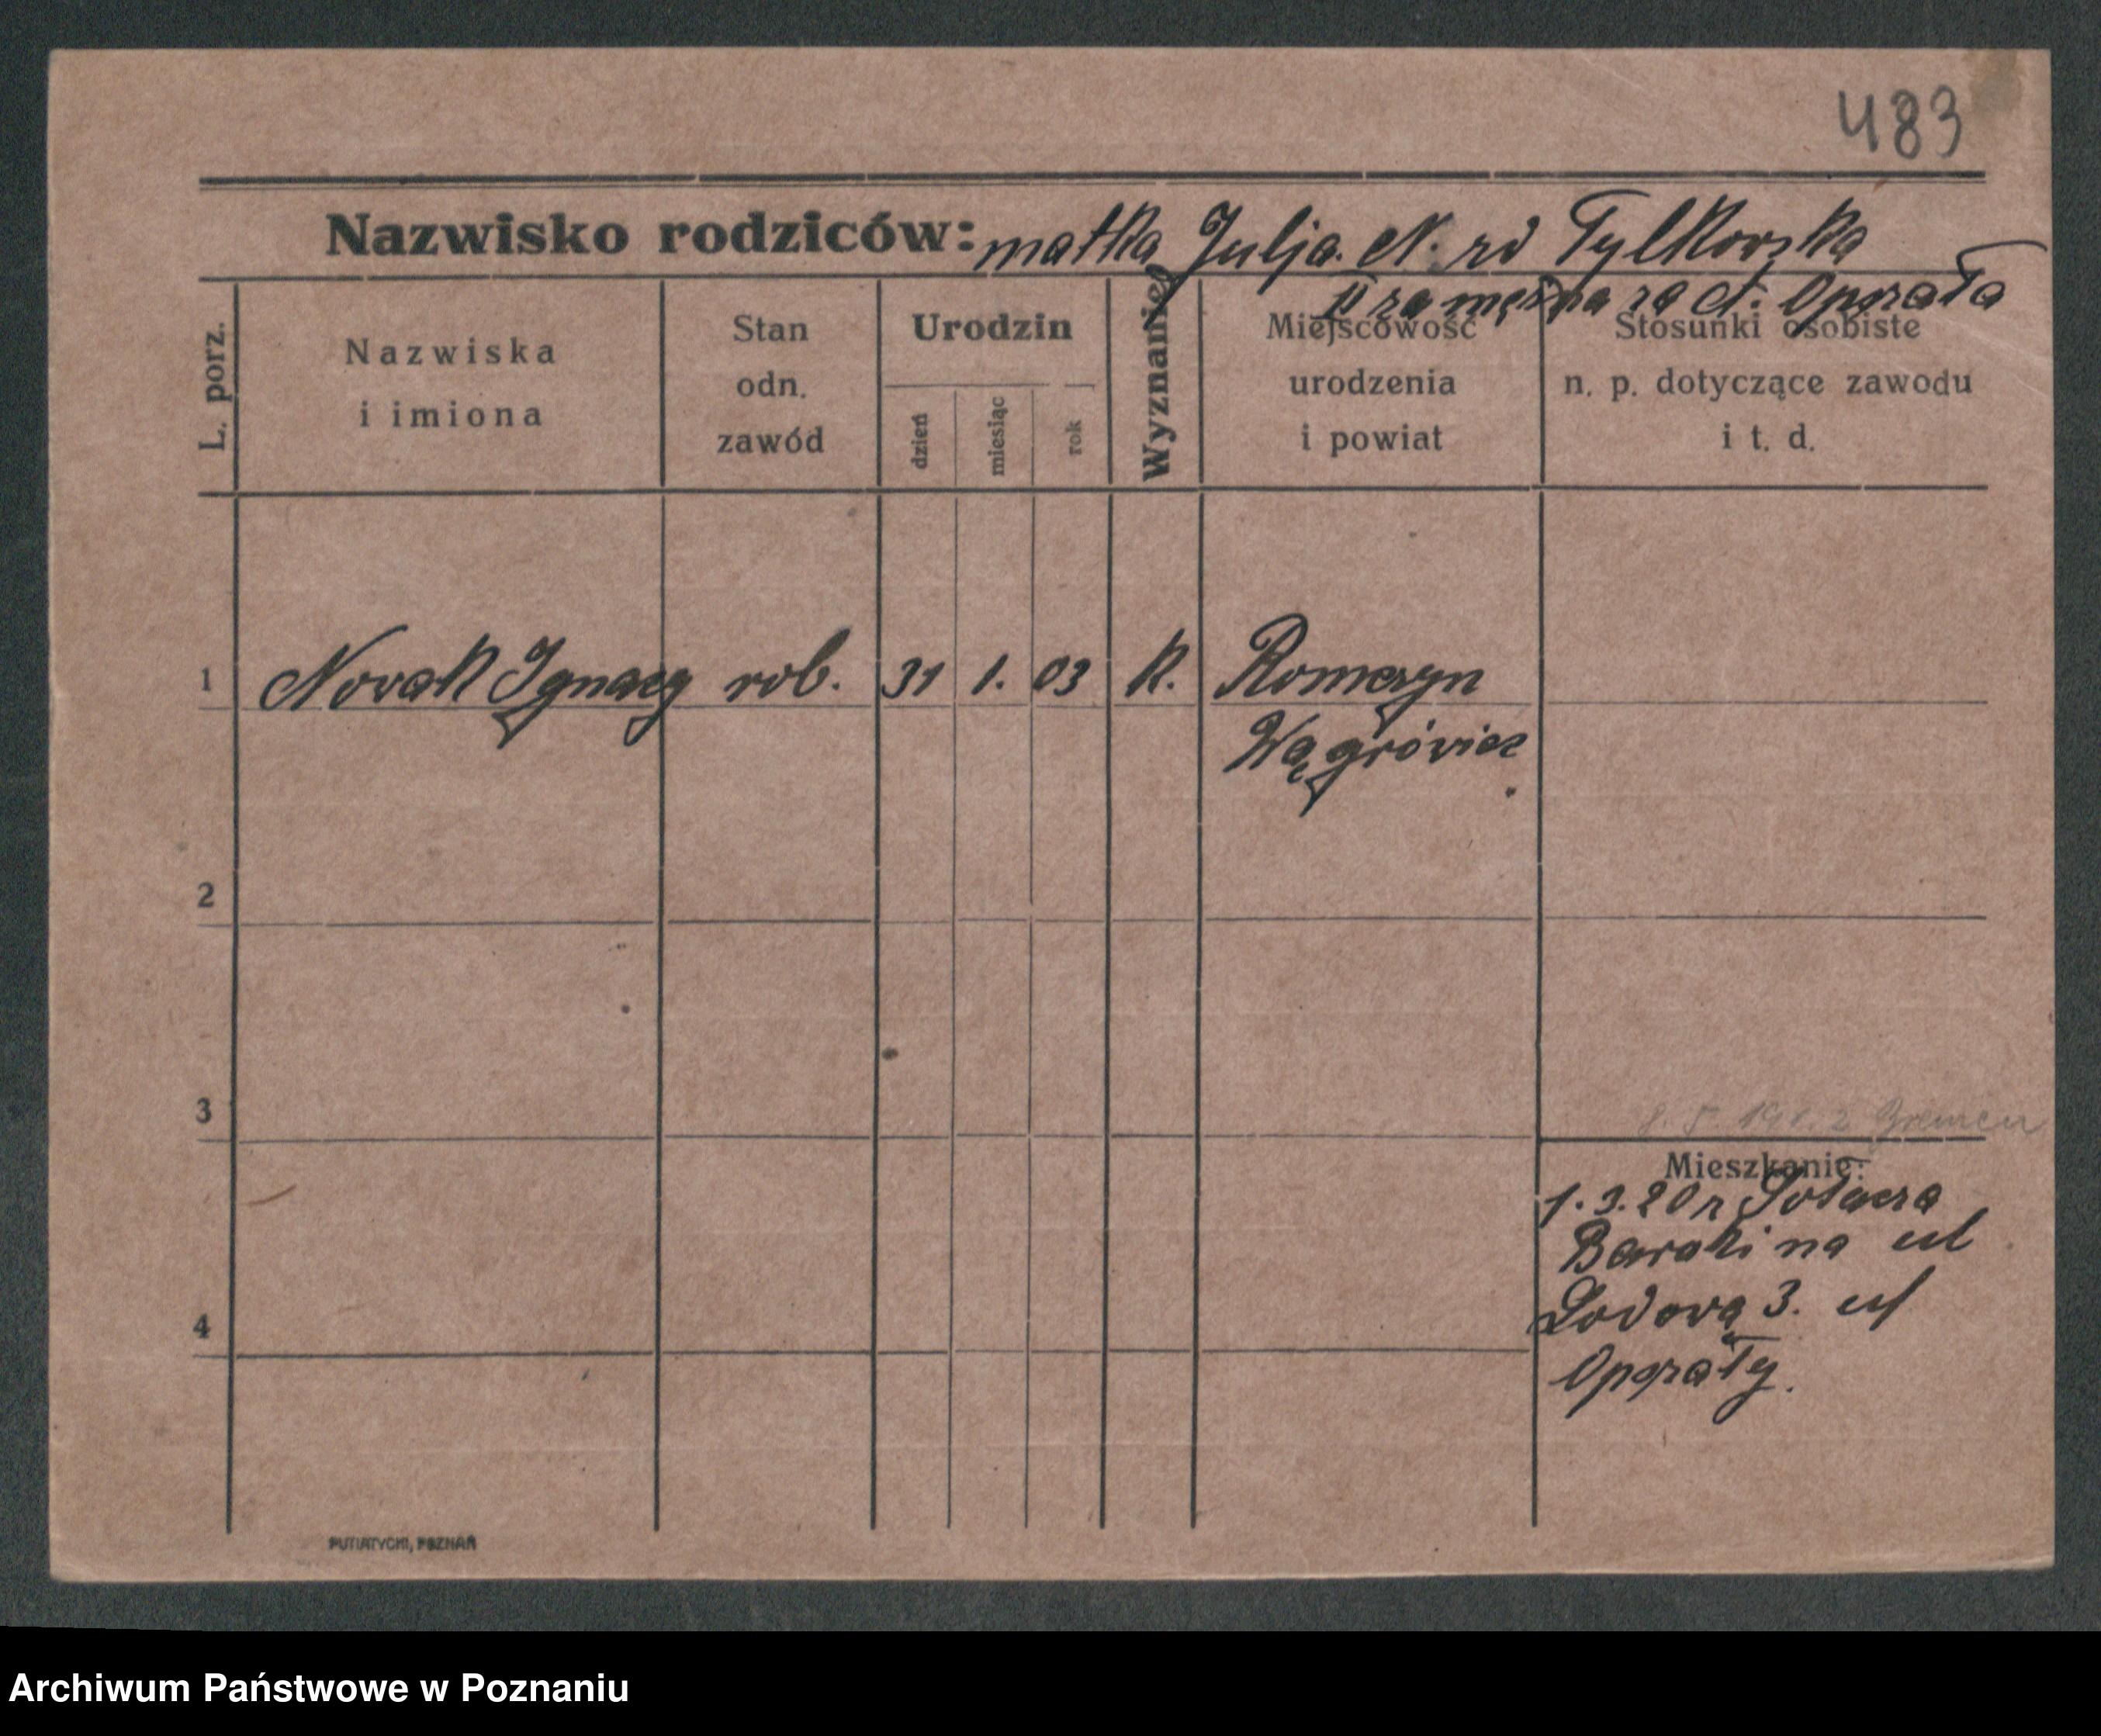 483
Nazwisko rodziców: matka Julja. N. rd Tylkowska
II zamężna za A. Opprała
L. porz.
Nazwiska
i imiona
Stan
odn.
zawód
Urodzin
dzień
miesiąc
rok
Wyznanie
Miejscowość
urodzenia
i powiat
Stosunki osobiste
n. p. dotyczące zawodu
i t. d.
1 Nowak Ignacy rob. 31 1. 03 K. Romczyn
Wągrówiec
2
3
Bremen
Mieszkanie:
1. 3. 20 r Sołacza
Baraki na ul
Lodowa 3. ul
4
PUTIATYCKI, POZNAŃ
Archiwum Państwowe w Poznaniu